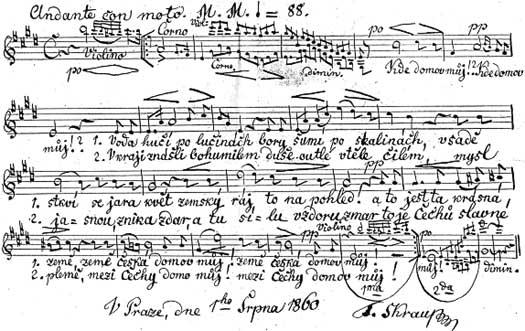 Andante con moto. M. M. ♩ = 88.
Viol: Corno
Violino
po Corno dimin. po pp
Kde domov můj!? Kde domov
můj!? 1. Voda hučí po lučinách bory šumí po skalinách, v sadě
2. V kraji znáš-li bohumilém duše outlé v těle čilém, mysl
1. stkví se jara květ zemský ráj to na pohled! a to jest ta krásná,
2. ja=snou, znika zdar, a tu sí=lu vzdoru zmar to je Čechů slavné
pp Violino pp po
1. země, země česká domov můj! země česká, domov můj! můj! dimin.
2. plémě, mezi Čechy domov můj! mezi Čechy domov můj!
1ma 2da
V Praze, dne 1ho Srpna 1860 F. Škraup